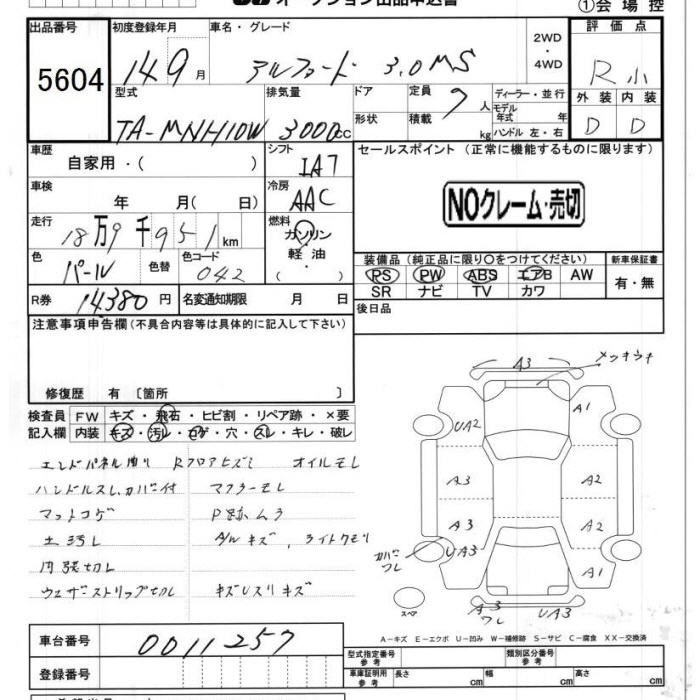 オークション出品申込書
①会場控
出品番号 初度登録年月 車名・グレード 2WD・4WD 評価点
5604 14 9月 アルファード 3.0MS R小
型式 排気量 ドア形状 定員 7人 積載 kg ディーラー・並行 モデル年式 年 ハンドル 左・右 外装 内装
TA-MNH10W 3000cc D D
車歴 自家用・( ) シフト IAT セールスポイント(正常に機能するものに限ります)
車検 年 月( 日) 冷房 AAC NOクレーム・売切
走行 18万9千951km 燃料 ガソリン・軽油・( )
色 パール 色替 色コード 042 装備品(純正品に限り○をつけてください) 新車保証書
PS PW ABS エアB AW 有・無
SR ナビ TV カワ
R券 14380円 名変通知期限 月 日 後日品
注意事項申告欄(不具合内容等は具体的に記入して下さい)
修復歴 有〔箇所 〕
検査員 FW キズ・飛石・ヒビ割・リペア跡・×要
記入欄 内装 キズ・汚レ・コゲ・穴・スレ・キレ・破レ
エンドパネル曲り Rフロアヒズミ オイルモレ
ハンドルスレ,カバー付 マフラーモレ
マットコゲ P跡ムラ
土汚レ Aルキズ,ライトクモリ
内張切レ
ウェザーストリップ切レ キズUスリキズ
A3 メッキウキ
UA2 A1
A3 A2
A3 A2
カバーワレ UA3 A1
スペア A3 ワレ UA3
A-キズ E-エクボ U-凹み W-補修跡 S-サビ C-腐食 XX-交換済
車台番号 0011257 型式指定番号 参考 類別区分番号 参考
登録番号 車庫証明用 参考 長さ cm 幅 cm 高さ cm